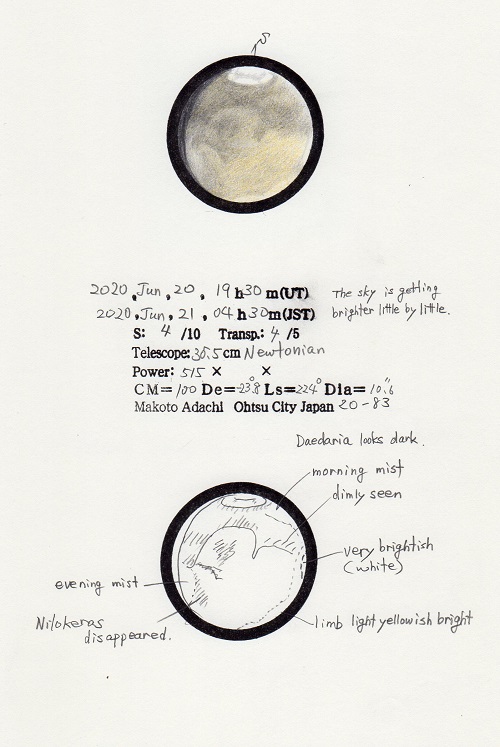 S
2020, Jun, 20, 19 h 30 m(UT)
The sky is getting
2020, Jun, 21, 04 h 30 m(JST)
brighter little by little.
S: 4 /10 Transp.: 4 /5
Telescope: 30.5 cm Newtonian
Power: 515 × ×
CM= 100 De= -23.8° Ls= 224° Dia= 10."6
Makoto Adachi Ohtsu City Japan 20-83
Daedaria looks dark.
morning mist
dimly seen
very brightish
(white)
evening mist
Nilokeras
disappeared.
limb light yellowish bright